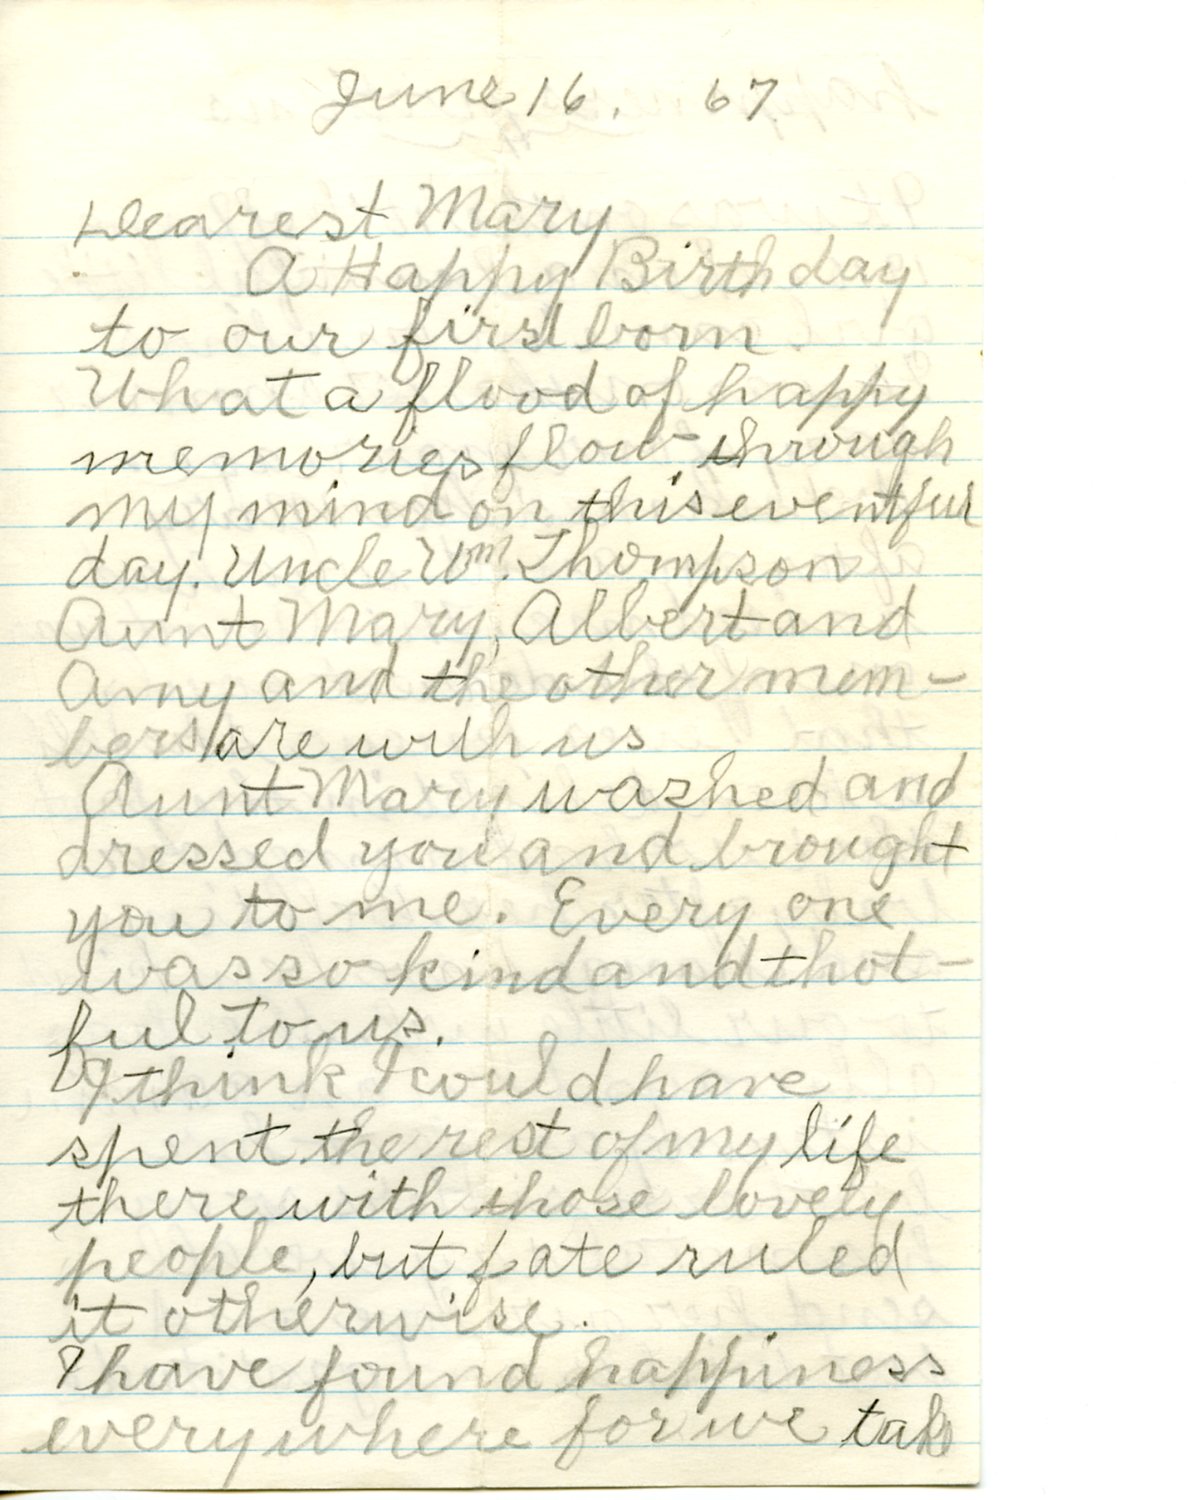 June 16. 67
Dearest Mary
A Happy Birthday
to our first born
What a flood of happy
memories flow through
my mind on this eventful
day. Uncle Wm. Thompson
Aunt Mary, Albert and
Amy and the other mem-
bers are with us
Aunt Mary washed and
dressed you and brought
you to me. Every one
was so kind and thot-
ful to us.
I think I could have
spent the rest of my life
there with those lovely
people, but fate ruled
it otherwise.
I have found happiness
everywhere for we take